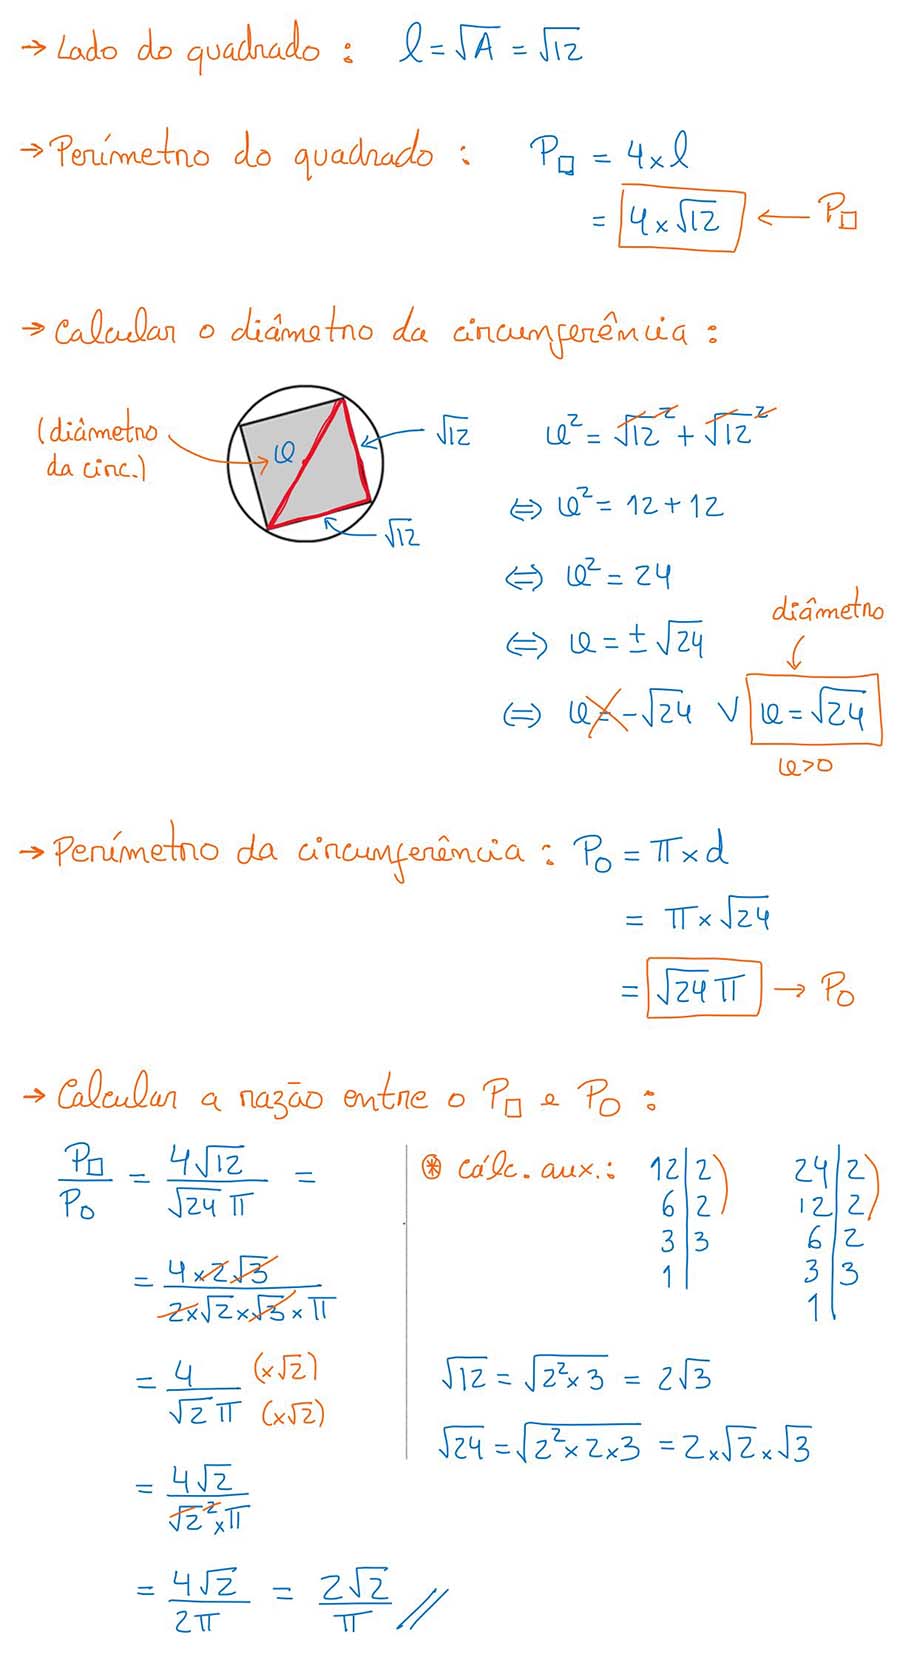 → Lado do quadrado : l = √A = √12
→ Perímetro do quadrado : P□ = 4 × l
= 4 × √12 ← P□
→ Calcular o diâmetro da circunferência :
(diâmetro
da circ.)
φ
√12
√12
φ² = √12² + √12²
⇔ φ² = 12 + 12
⇔ φ² = 24
⇔ φ = ± √24
diâmetro
⇔ φ = -√24 ∨ φ = √24
φ>0
→ Perímetro da circunferência : P○ = π × d
= π × √24
= √24 π → P○
→ Calcular a razão entre o P□ e P○ :
P□/P○ = 4√12/√24 π =
= 4×2√3/2×√2×√3×π
= 4/√2 π (×√2) (×√2)
= 4√2/√2²×π
= 4√2/2π = 2√2/π //
⊛ cálc. aux.:
12|2
6|2
3|3
1|
24|2
12|2
6|2
3|3
1|
√12 = √2²×3 = 2√3
√24 = √2²×2×3 = 2×√2×√3